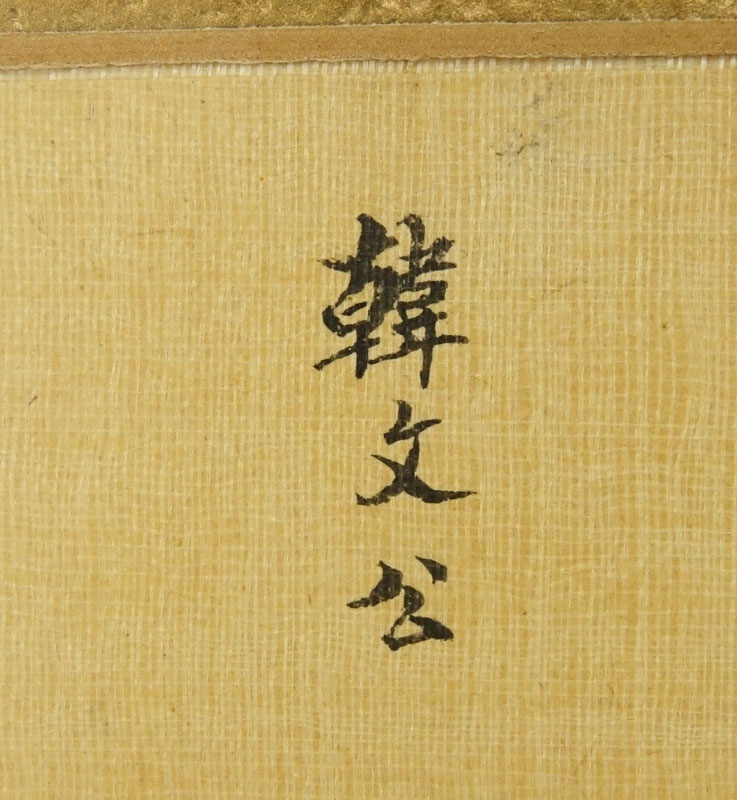 韓文公